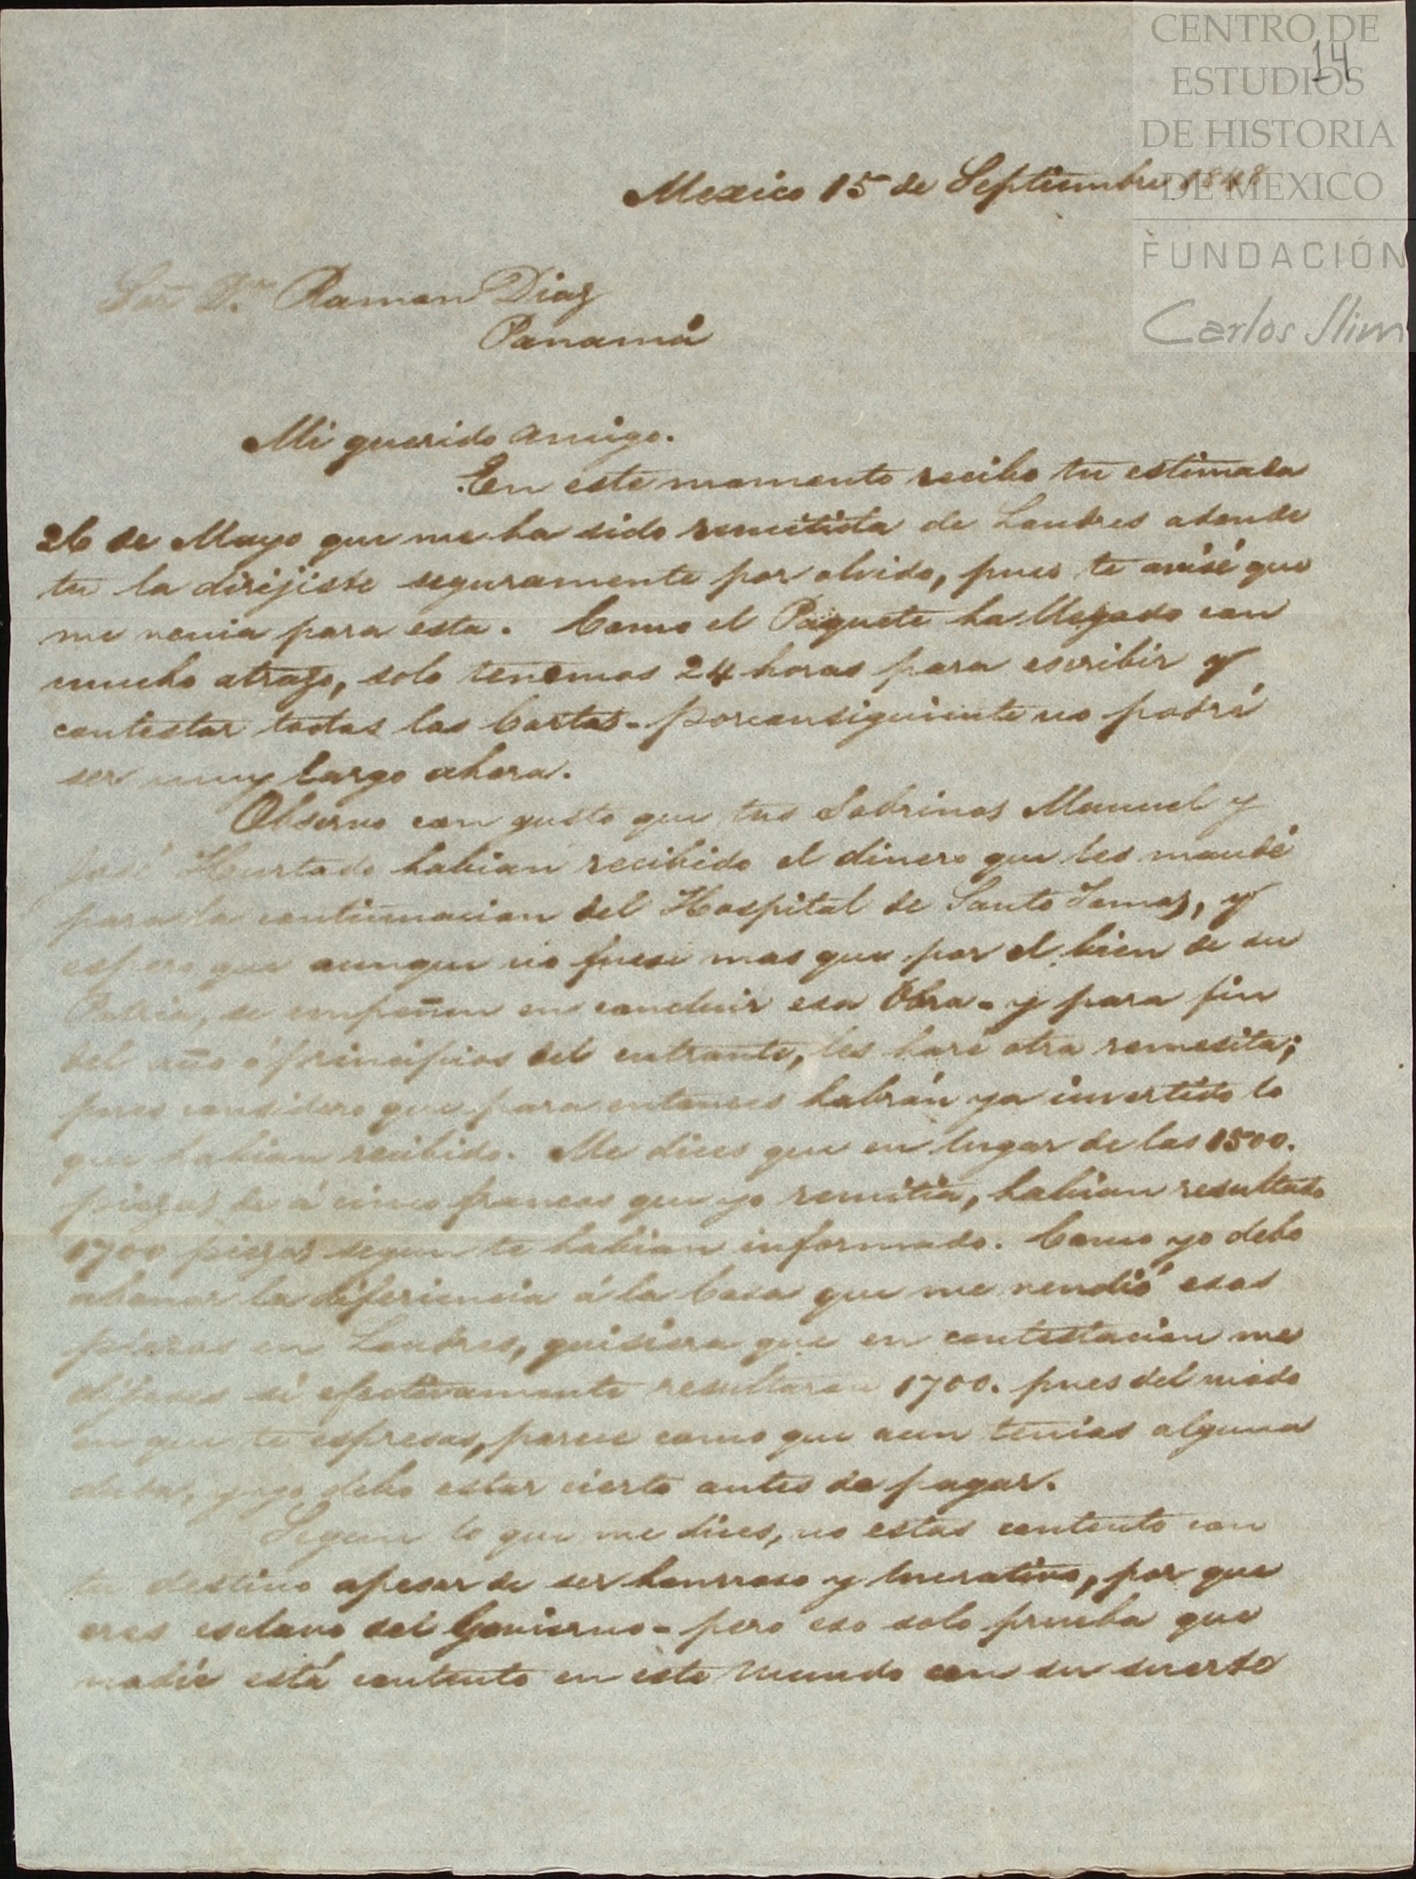 CENTRO DE
ESTUDIOS
DE HISTORIA
DE MEXICO
FUNDACIÓN
Carlos Slim
14
Mexico 15 de Septiembre 1848
Señ. Dn. Ramon Diaz
Panamá
Mi querido amigo.
En este momento recibo tu estimada
26 de Mayo que me ha sido remitida de Londres adonde
tu la dirijiste seguramente por olvido, pues te avisé que
me venia para esta. Como el Paquete ha llegado con
mucho atrazo, solo tenemos 24 horas para escribir y
contestar todas las Cartas - porconsiguiente no podré
ser muy largo ahora.
Observo con gusto que tus Sobrinos Manuel y
José Hurtado habian recibido el dinero que les mandé
para la continuacion del Hospital de Santo Tomas, y
espero que aunque no fuese mas que por el bien de su
Patria, se empeñen en concluir esa Obra - y para fin
del año ó principios del entrante, les haré otra remesita;
pues considero que para entonces habrán ya invertido lo
que habian recibido. Me dices que en lugar de las 1500.
piezas de á cinco francos que yo remitia, habian resultado
1700 piezas segun te habian informado. Como yo debo
abonar la diferiencia á la Casa que me vendió esas
piezas en Londres, quisiera que en contestacion me
dijeses si efectivamente resultaron 1700. pues del modo
en que te espresas, parece como que aun tenias alguna
duda, y yo debo estar cierto antes de pagar.
Segun lo que me dices, no estas contento con
tu destino apesar de ser honrroso y lucrativo, por que
eres esclavo del Govierno - pero eso solo prueba que
nadie está contento en este Mundo con su suerte